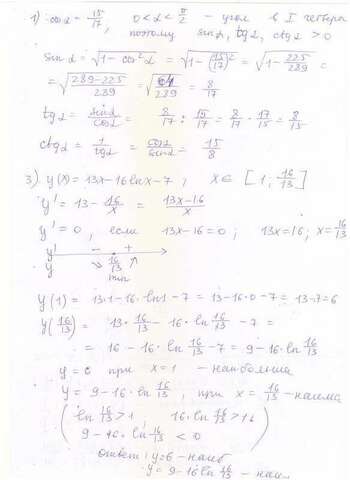 1) cos α = 15/17, 0 < α < π/2 - угол в I четвер
поэтому sin α, tg α, ctg α > 0
sin α = √(1 - cos² α) = √(1 - (15/17)²) = √(1 - 225/289) =
= √((289-225)/289) = √(64/289) = 8/17
tg α = sin α/cos α = 8/17 : 15/17 = 8/17 · 17/15 = 8/15
ctg α = 1/tg α = cos α/sin α = 15/8
3) y(x) = 13x - 16 ln x - 7 ; x ∈ [1; 16/13]
y' = 13 - 16/x = (13x-16)/x
y' = 0, если 13x-16=0 ; 13x=16; x=16/13
y' - +
y ↘ 16/13 ↗
min
y(1) = 13·1-16·ln1-7 = 13-16·0-7 = 13-7=6
y(16/13) = 13·16/13 - 16·ln 16/13 - 7 =
= 16 - 16·ln 16/13 - 7 = 9-16·ln 16/13
y = 6 при x = 1 - наибольш
y = 9-16·ln 16/13, при x = 16/13 - наим
(ln 16/13 > 1, 16·ln 16/13 > 16
9-16·ln 16/13 < 0)
ответ: y=6 - наиб
y = 9-16 ln 16/13 - наи